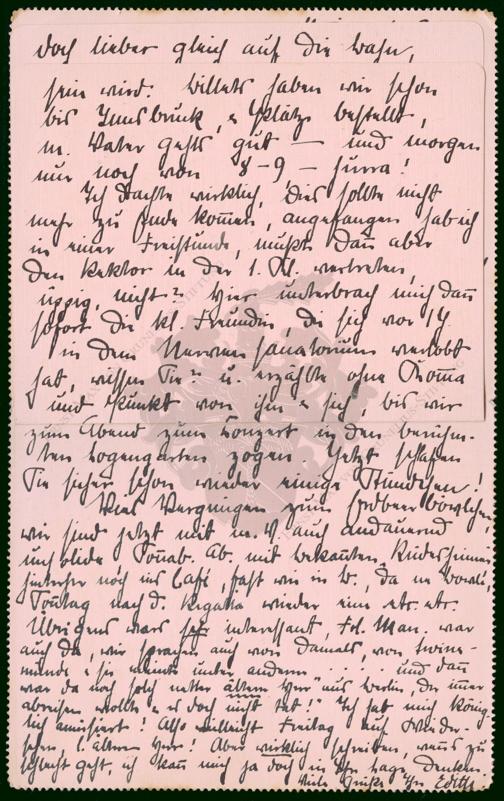 doch lieber gleich auf die Bahn,
sein wird. Billets haben wir schon
bis Innsbruck, u. Plätze bestellt,
m. Vater gehts gut — und morgen
nur noch von 8-9 — hurra!
Ich dachte wirklich, dies sollte nicht
mehr zu Ende kommen, angefangen hab ich
in einer Freistunde, mußte dann aber
den Rektor in der 1. Kl. vertreten,
üppig, nicht? Hier unterbrach mich dann
sofort die kl. Freundin, die sich vor 1 J.
in dem Nervensanatorium verlobt
hat, wissen Sie? u. erzählte ohne Komma
und Punkt von ihm u. sich, bis wir
zum Abend zum Konzert in den berühm-
ten Logengarten zogen. Jetzt schlafen
Sie sicher schon wieder einige Stündchen!
Viel Vergnügen zum Erdbeerböwlchen,
wir sind jetzt mit m. V. auch andauernd
unsolide Sonnab. Ab. mit bekannten
hinterher noch ins Café, fast wie in B., da ne Bowle,
Sonntag nach d. Regatta wieder eine etc. etc.
Übrigens wars sehr interessant, Frl. Man. war
auch da, wir sprachen auch von damals, von Swine-
münde u. sie meinte unter anderm .... und dann
war da noch solch netter älterer Herr aus Berlin, der immer
abreisen wollte u. es doch nicht tat!" Ich hab mich könig-
lich amüsiert! Also vielleicht Freitag auf Wieder-
sehen, l. älterer Herr! Aber wirklich schreiben, wenns zu
schlecht geht, ich kann mich ja doch in Ihre Lage denken
Viele Grüße Ihre Edith